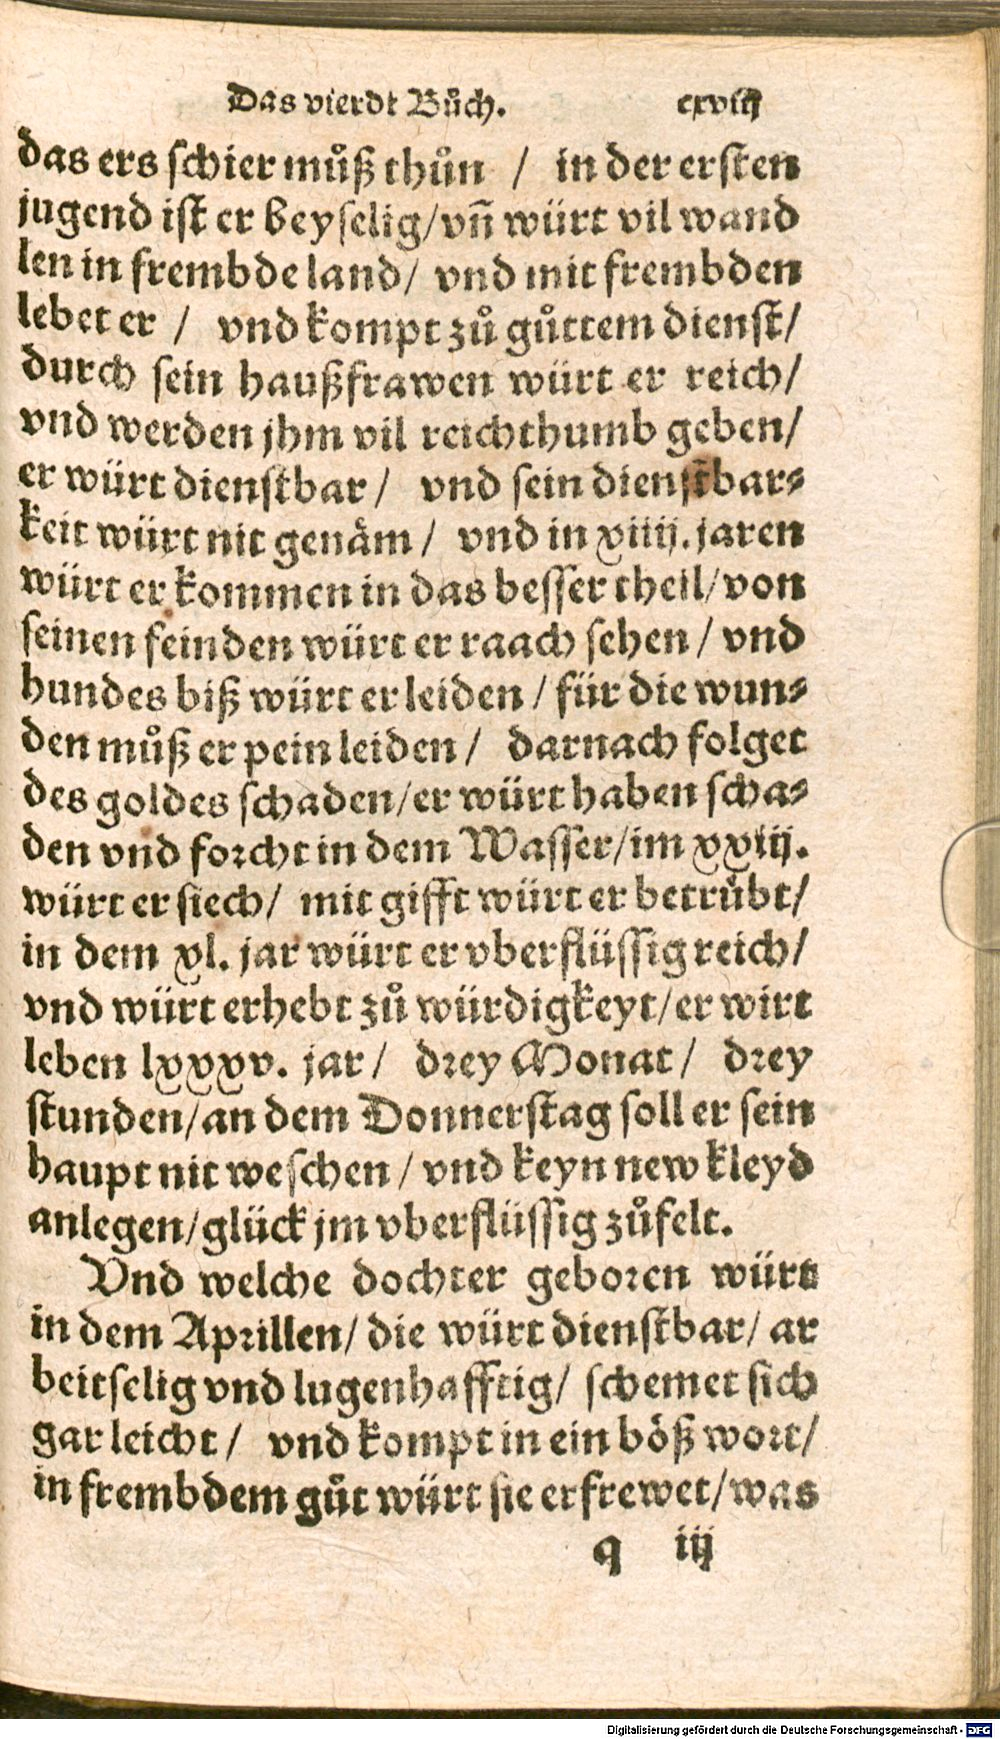 Das vierdt Bůch. cxviij
das ers schier můß thůn / in der ersten
jugend ist er beyselig/vñ würt vil wand
len in frembde land/ vnd mit frembden
lebet er / vnd kompt zů gůttem dienst/
durch sein haußfrawen würt er reich/
vnd werden jhm vil reichthumb geben/
er würt dienstbar/ vnd sein dienstbar⸗
keit würt nit genäm/ vnd in xiiij. jaren
würt er kommen in das besser theil/von
seinen feinden würt er raach sehen/ vnd
hundes biß würt er leiden/ für die wun⸗
den můß er pein leiden/ darnach folget
des goldes schaden/er würt haben scha⸗
den vnd forcht in dem Wasser/im xxiij.
würt er siech/ mit gifft würt er betrůbt/
in dem xl. jar würt er vberflüssig reich/
vnd würt erhebt zů würdigkeyt/er wirt
leben lxxxv. jar/ drey Monat/ drey
stunden/an dem Donnerstag soll er sein
haupt nit weschen/ vnd keyn new kleyd
anlegen/glück jm vberflüssig zůfelt.
Vnd welche dochter geboren würt
in dem Aprillen/ die würt dienstbar/ ar
beitselig vnd lugenhafftig/ schemet sich
gar leicht/ vnd kompt in ein böß wort/
in frembdem gůt würt sie erfrewet/was
q iij
Digitalisierung gefördert durch die Deutsche Forschungsgemeinschaft - DFG